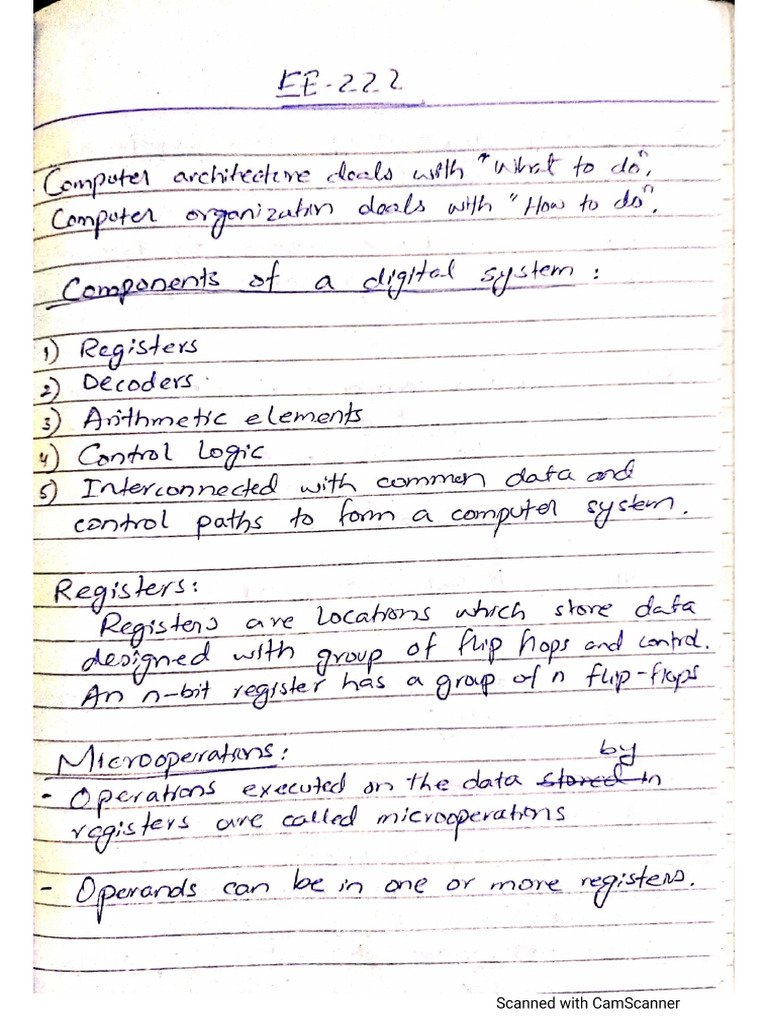 EE-222
Computer architecture deals with "What to do".
Computer organization deals with "How to do".
Components of a digital system :
1) Registers
2) Decoders
3) Arithmetic elements
4) Control Logic
5) Interconnected with common data and
control paths to form a computer system.
Registers:
Registers are locations which store data
designed with group of flip flops and control.
An n-bit register has a group of n flip-flops
Microoperations:
by
- Operations executed on the data stored in
registers are called microoperations
- Operands can be in one or more registers.
Scanned with CamScanner